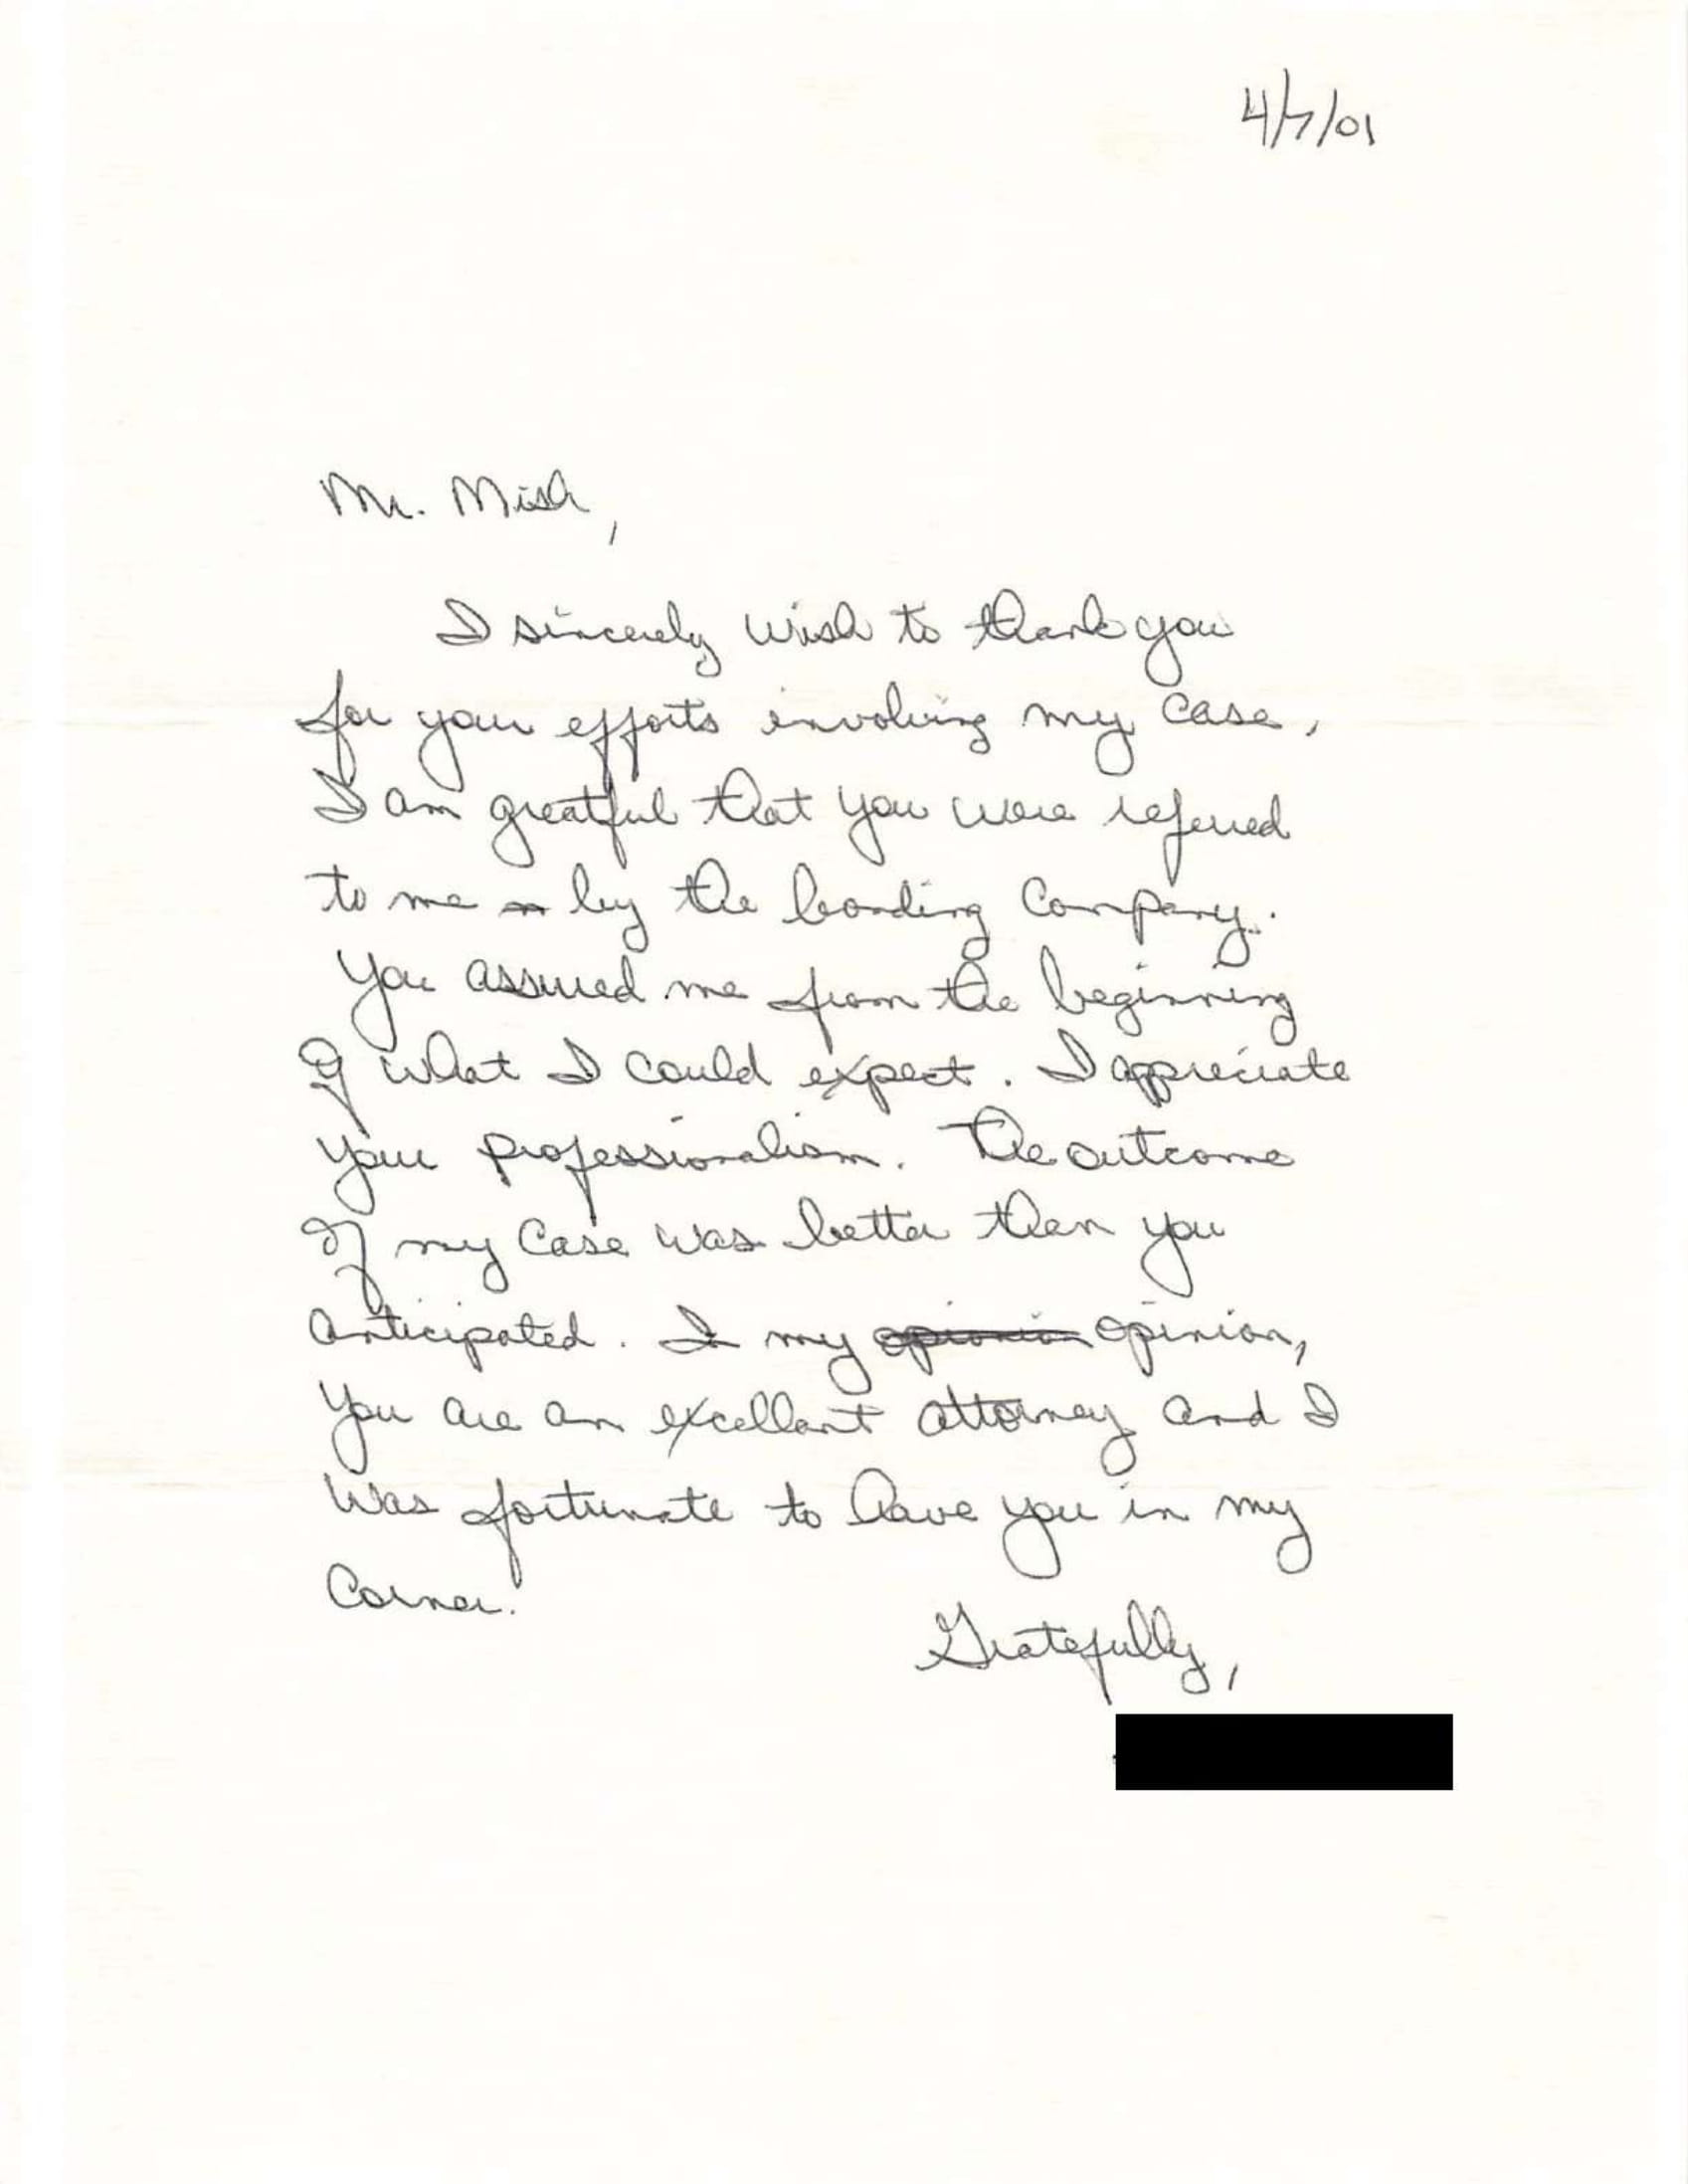 4/7/01
Mr. Mish,
I sincerely wish to thank you
for your efforts involving my case,
I am greatful that you were referred
to me by the bonding Company.
You assured me from the beginning
of what I could expect. I appreciate
your professionalism. The outcome
of my Case was better then you
anticipated. In my opinion opinion,
You are an excellant attorney and I
was fortunate to have you in my
Corner.
Gratefully,